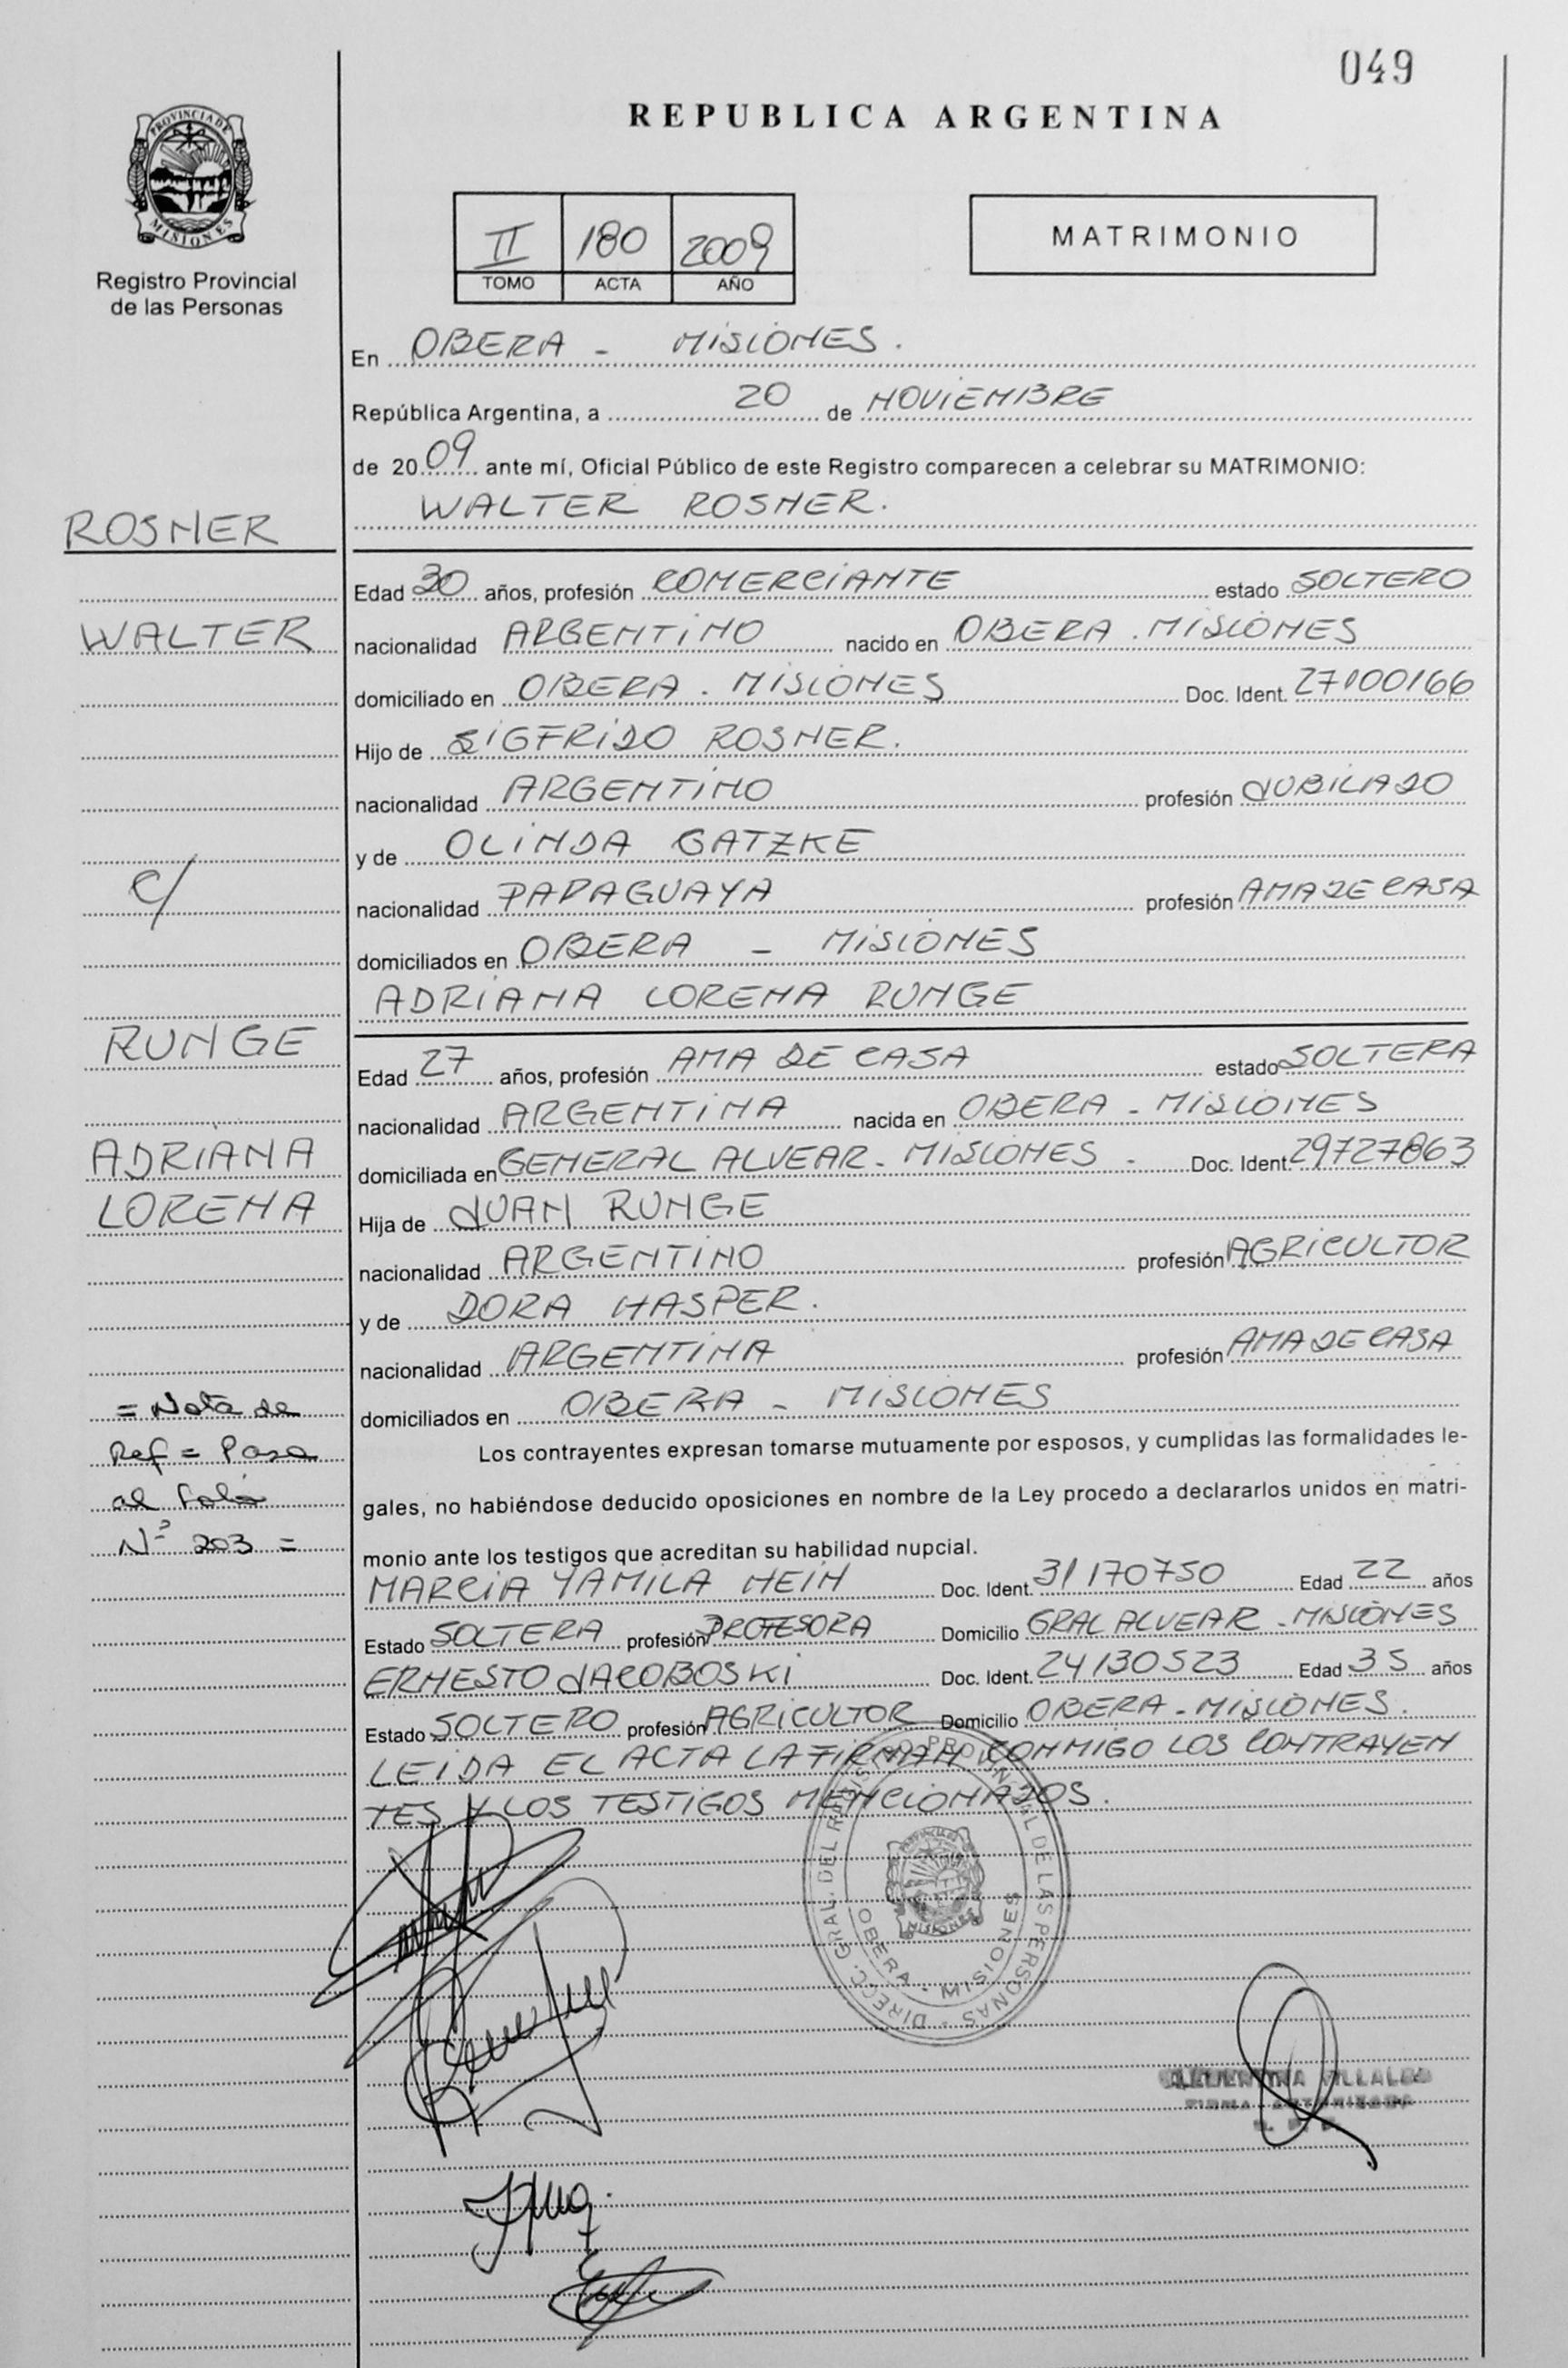 049
REPUBLICA ARGENTINA
PROVINCIA DE
MISIONES
Registro Provincial
de las Personas
II 180 2009
TOMO ACTA AÑO
MATRIMONIO
En OBERA - MISIONES.
República Argentina, a 20 de NOVIEMBRE
de 2009 ante mí, Oficial Público de este Registro comparecen a celebrar su MATRIMONIO:
WALTER ROSNER.
ROSNER
Edad 30 años, profesión COMERCIANTE estado SOLTERO
WALTER
nacionalidad ARGENTINO nacido en OBERA . MISIONES
domiciliado en OBERA - MISIONES Doc. Ident. 27100166
Hijo de SIGFRIDO ROSNER.
nacionalidad ARGENTINO profesión JUBILADO
y de OLINDA GATZKE
c/
nacionalidad PARAGUAYA profesión AMA DE CASA
domiciliados en OBERA - MISIONES
ADRIANA LORENA RUNGE
RUNGE
Edad 27 años, profesión AMA DE CASA estado SOLTERA
nacionalidad ARGENTINA nacida en OBERA - MISIONES
ADRIANA
domiciliada en GENERAL ALVEAR - MISIONES - Doc. Ident. 29727863
LORENA
Hija de JUAN RUNGE
nacionalidad ARGENTINO profesión AGRICULTOR
y de DORA HASPER.
nacionalidad ARGENTINA profesión AMA DE CASA
domiciliados en OBERA - MISIONES
= Nota de
Ref = Pasa
al Folio
Nº 203 =
Los contrayentes expresan tomarse mutuamente por esposos, y cumplidas las formalidades le-
gales, no habiéndose deducido oposiciones en nombre de la Ley procedo a declararlos unidos en matri-
monio ante los testigos que acreditan su habilidad nupcial.
MARCIA YAMILA HEIN Doc. Ident. 31170750 Edad 22 años
Estado SOLTERA profesión PROFESORA Domicilio GRAL ALVEAR - MISIONES
ERNESTO JACOBOSKI Doc. Ident. 24130523 Edad 35 años
Estado SOLTERO profesión AGRICULTOR Domicilio OBERA - MISIONES.
LEIDA EL ACTA LA FIRMAN CONMIGO LOS CONTRAYEN
TES Y LOS TESTIGOS MENCIONADOS.
DIRECC. GRAL. DEL REGISTRO PROVINCIAL DE LAS PERSONAS
OBERA - MISIONES
MISIONES
VILLALBA
FIRMA AUTORIZADA